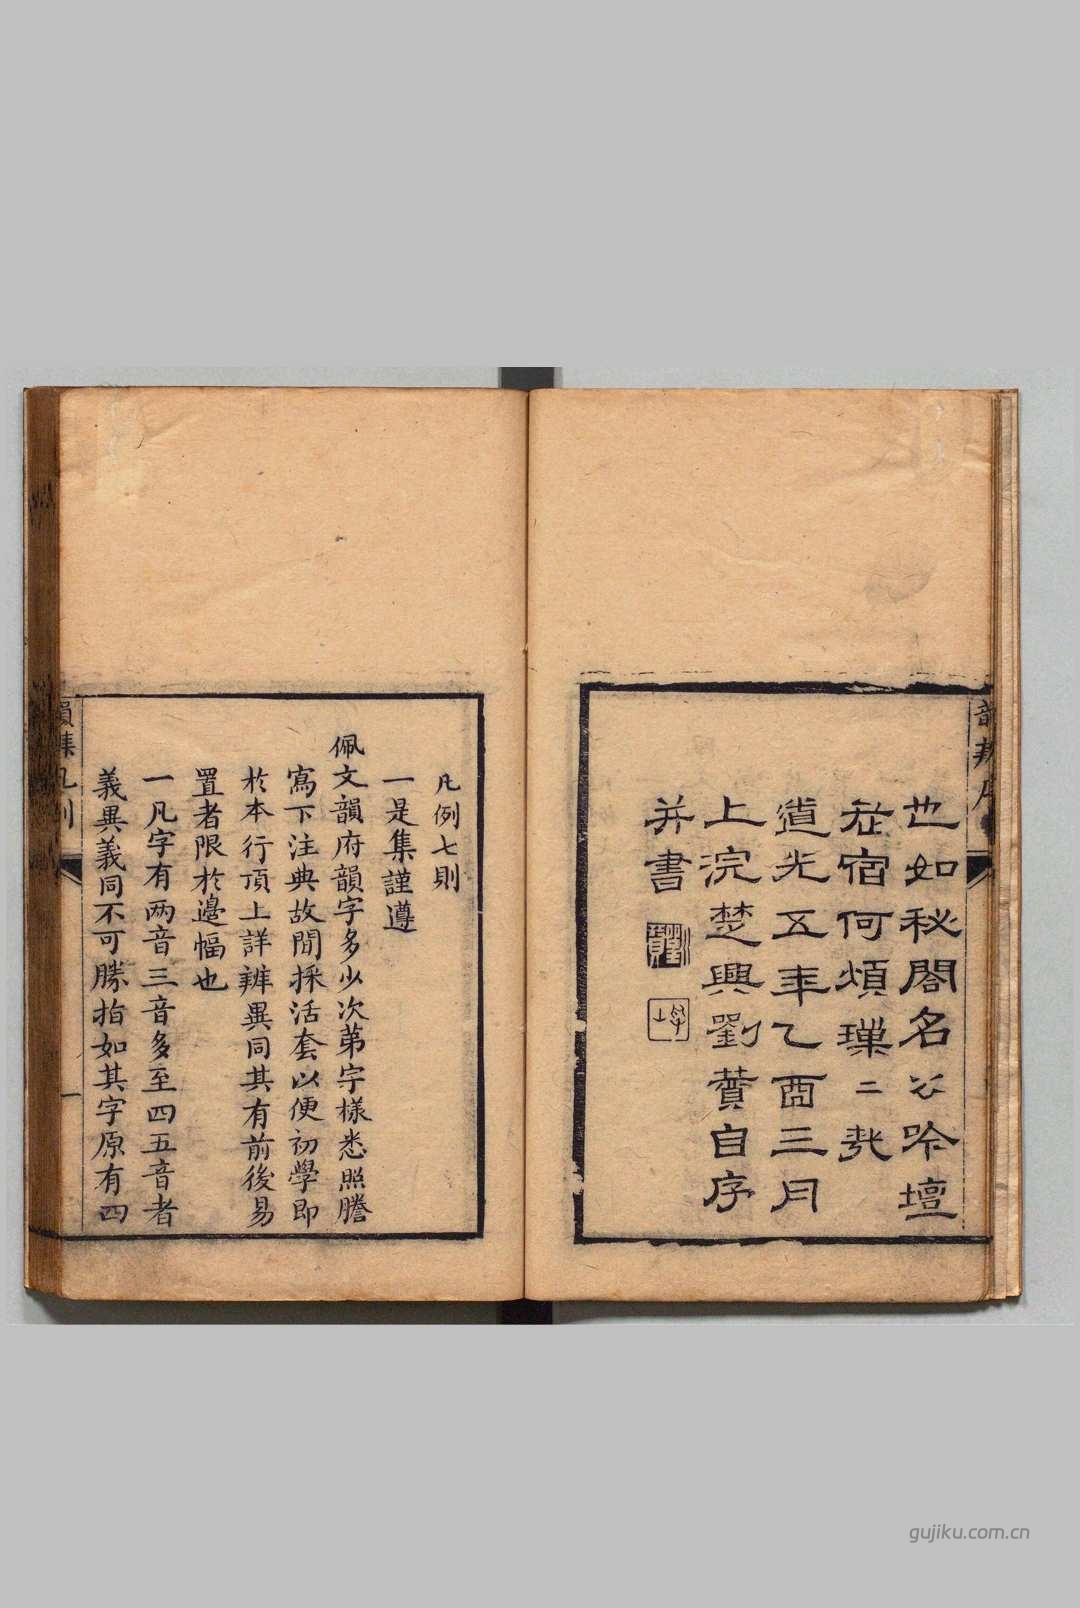 也如秘閣名公吟壇
社宿何煩瑣二哉
道光五年乙酉三月
上浣楚興劉賛自序
并書
凡例七則
一是集謹遵
佩文韻府韻字多少次第字樣悉照謄
寫下注典故間採活套以便初學即
於本行頂上詳辨異同其有前後易
置者限於邊幅也
一凡字有两音三音多至四五音者
義異義同不可勝指如其字原有四
韻集凡例
一
gujiku.com.cn